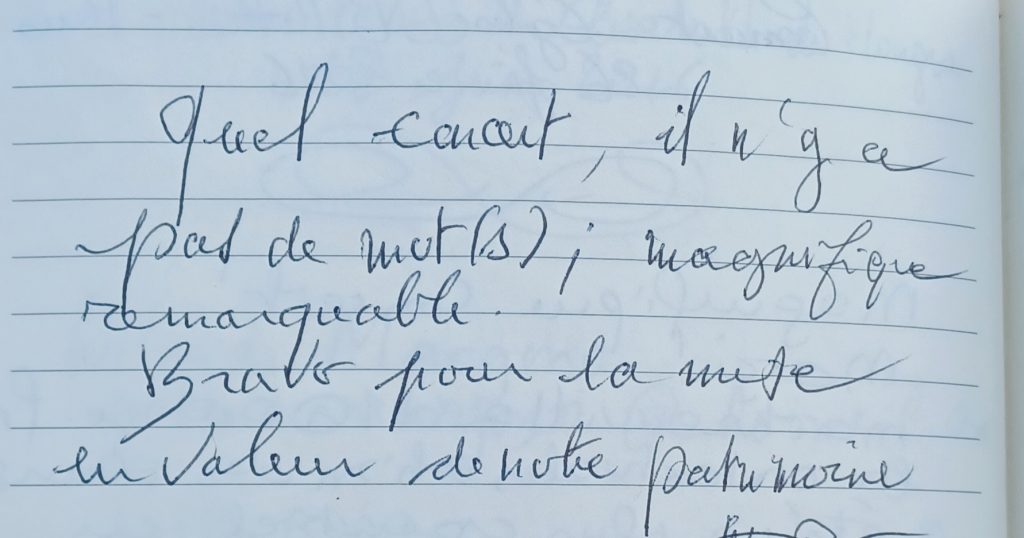 Quel concert, il n'y a
pas de mot(s) ; magnifique
remarquable.
Bravo pour la mise
en valeur de notre patrimoine